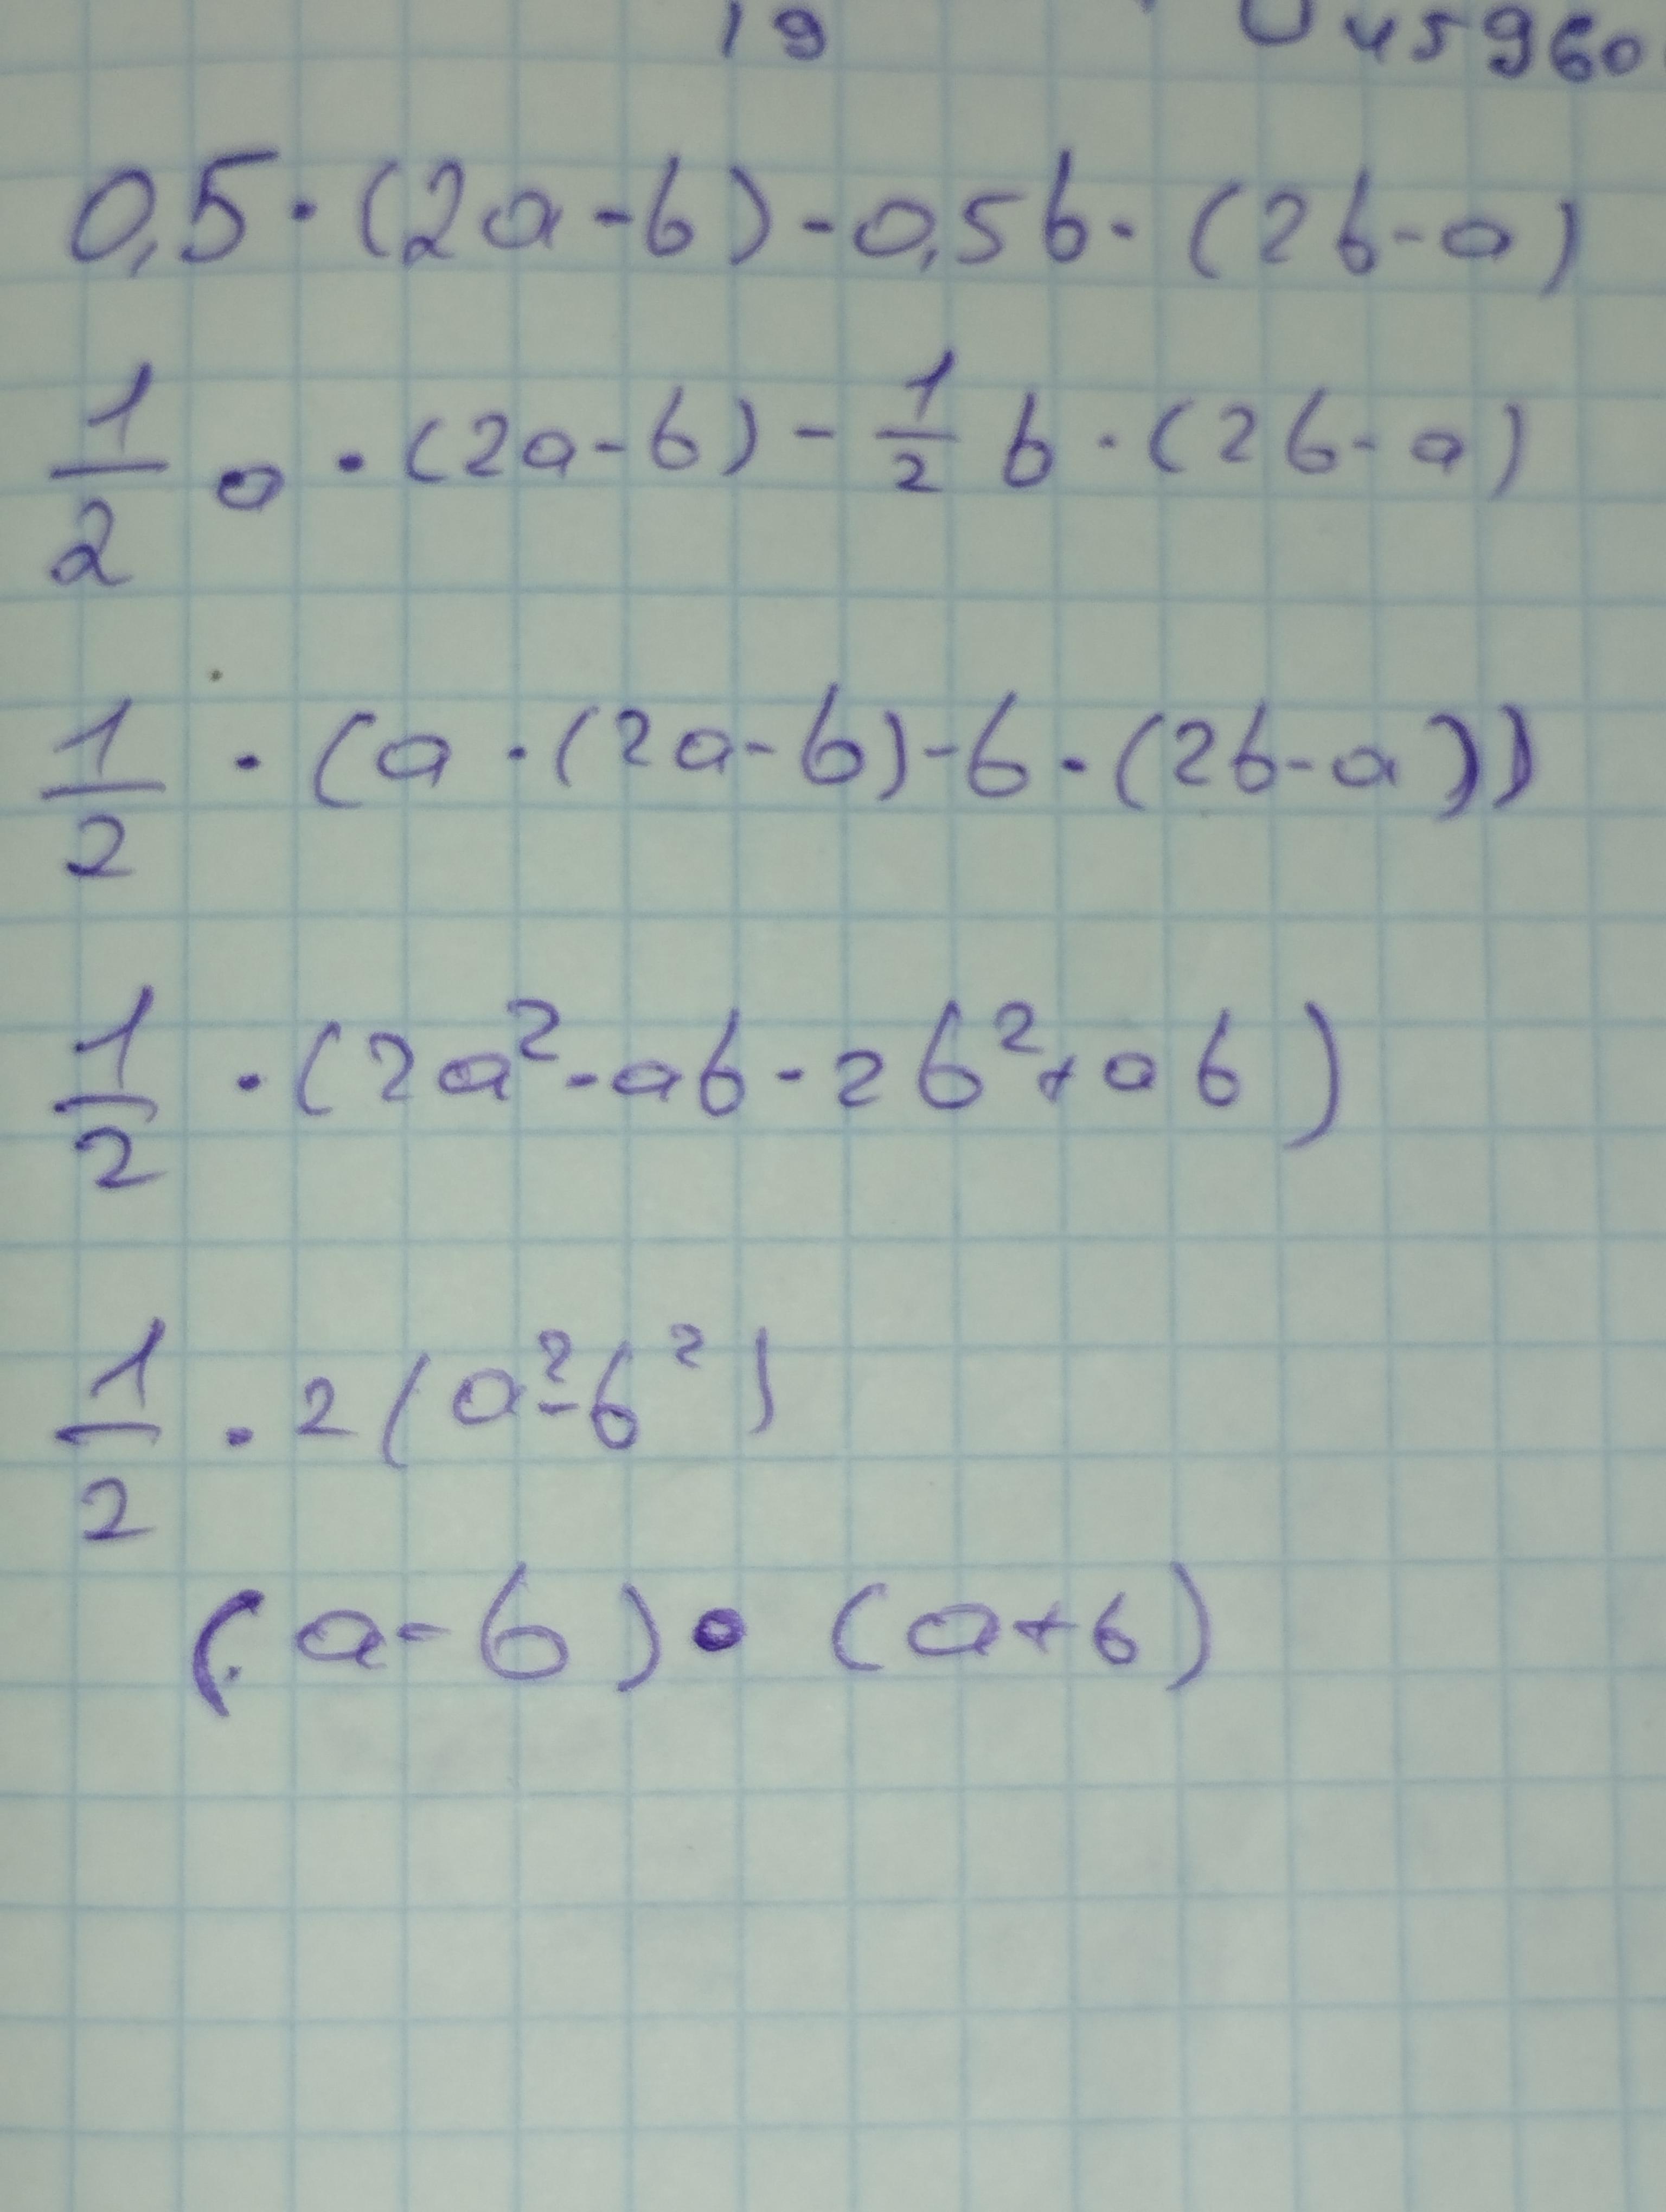 19 45960
0,5·(2a-b)-0,5b·(2b-a)
1/2 a·(2a-b)-1/2 b·(2b-a)
1/2·(a·(2a-b)-b·(2b-a))
1/2·(2a²-ab-2b²+ab)
1/2·2(a²-b²)
(a-b)·(a+b)